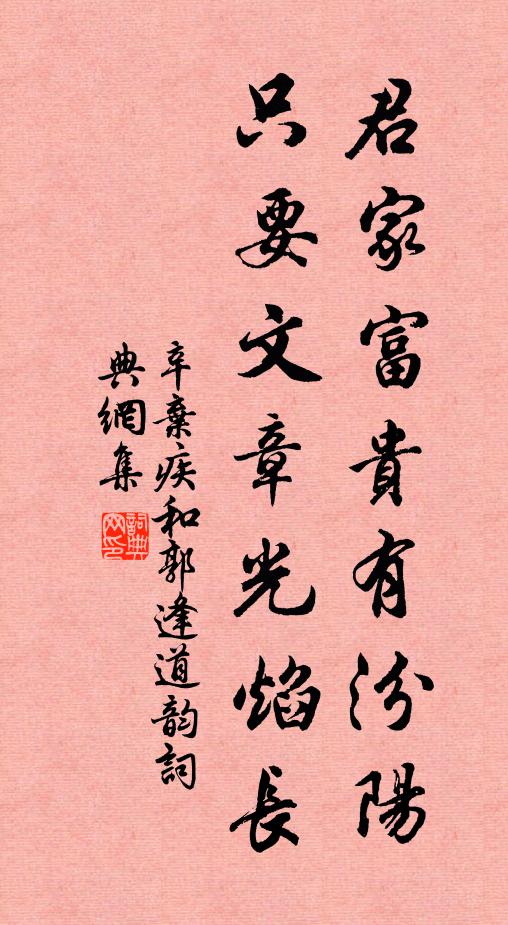 君家富貴有汾陽
只要文章光焰長
辛棄疾和郭逢道韵詞
典網集
詞典網印